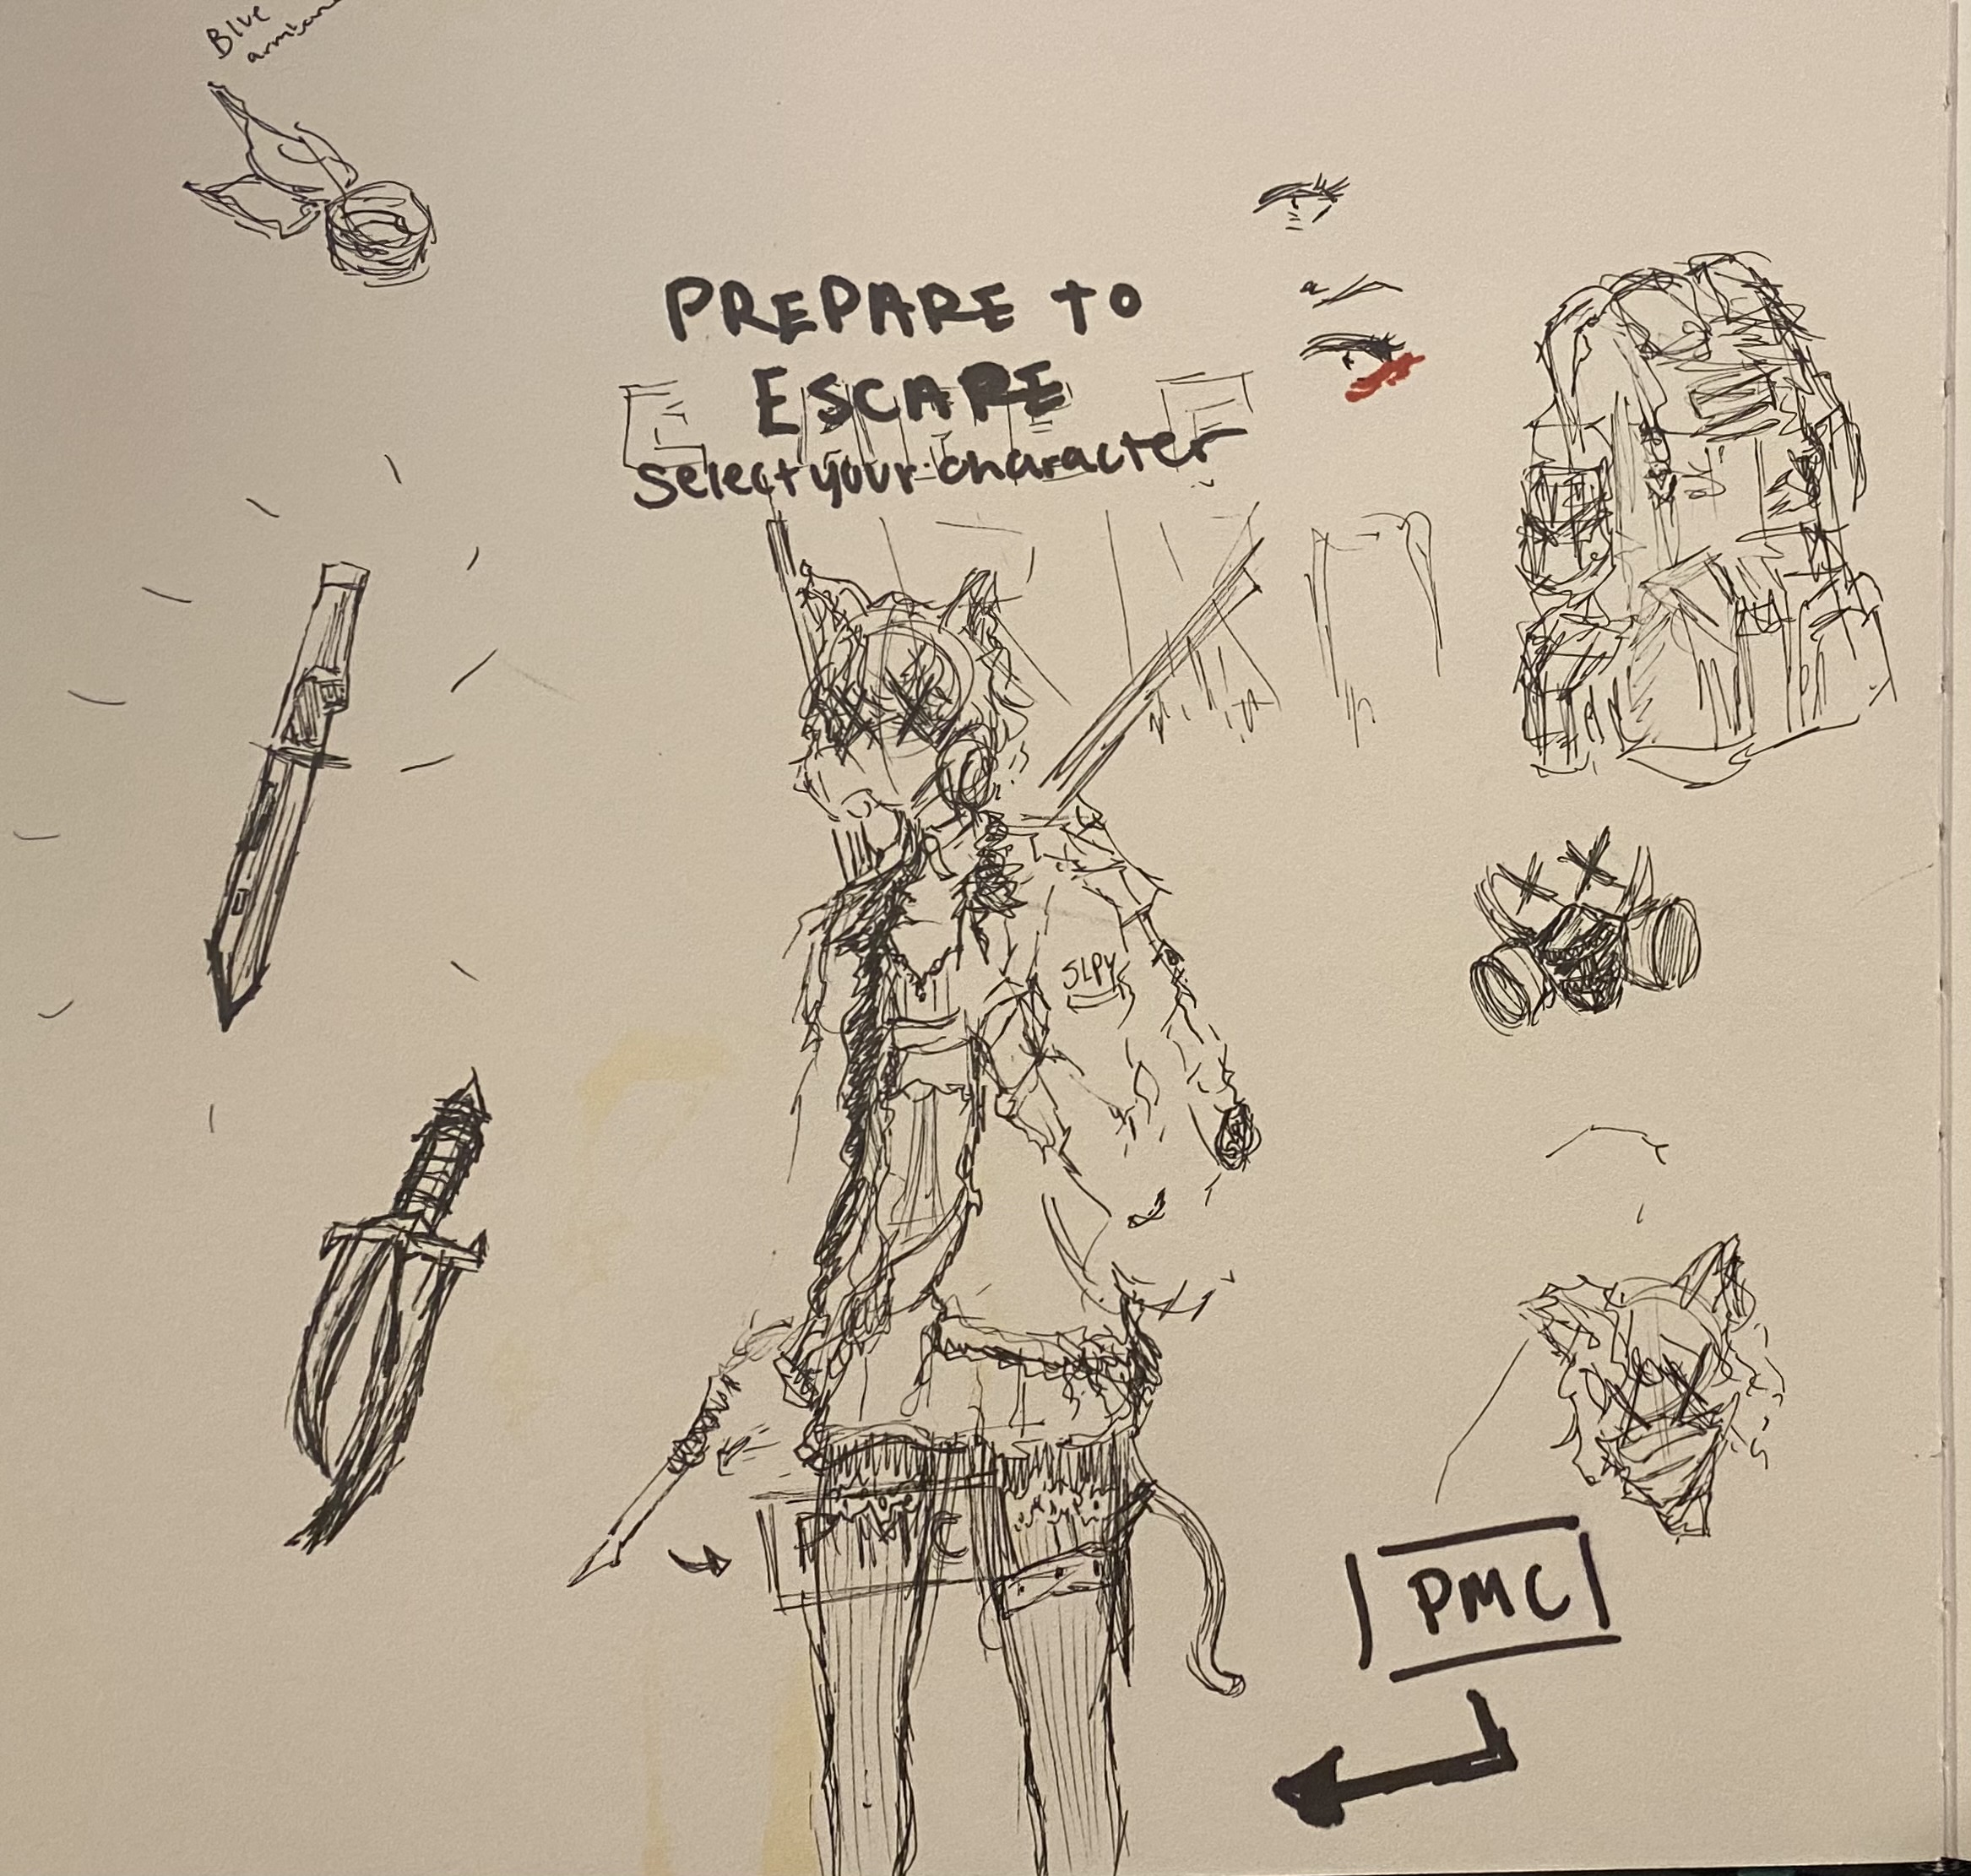 Blue
armband
PREPARE to
ESCAPE
Select your character
SLPY
PMC
PMC